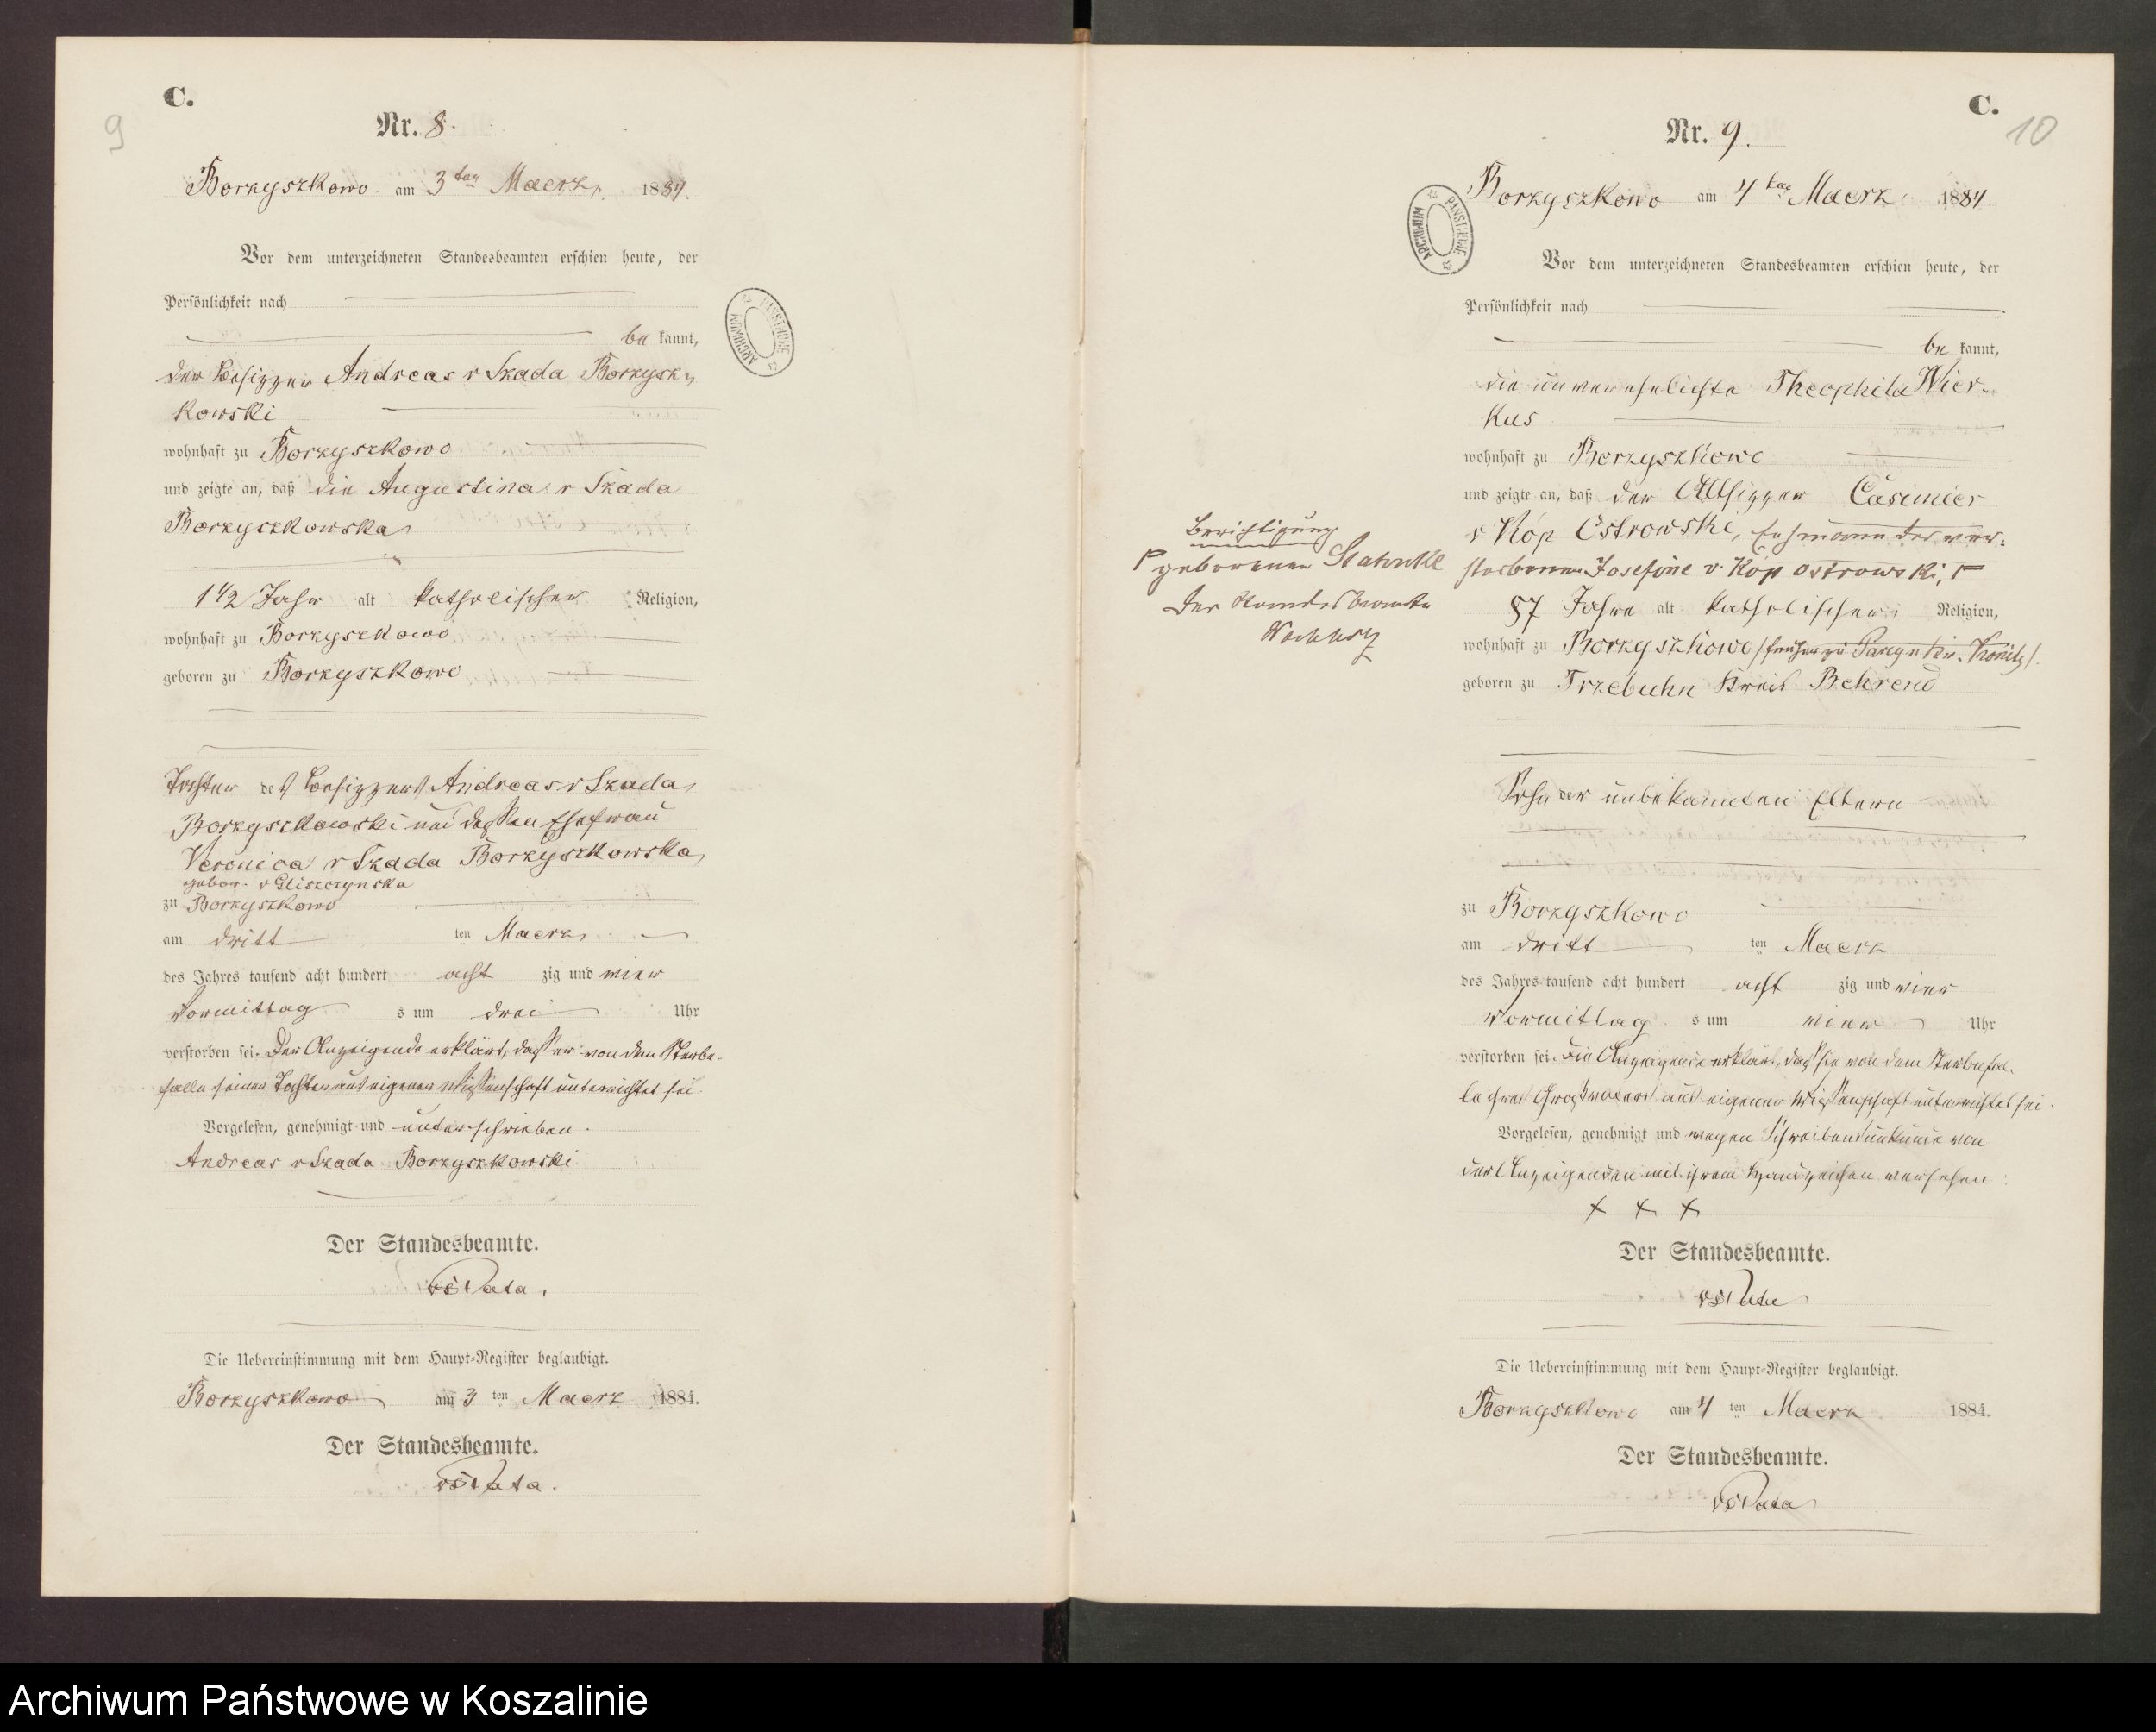 C.
9
Nr. 8.
Borzyszkowo am 3ten Maerz 1884.
Vor dem unterzeichneten Standesbeamten erschien heute, der
Persönlichkeit nach
be kannt,
der Besitzer Andreas v Skada Borzysz-
kowski
wohnhaft zu Borzyszkowo
und zeigte an, daß die Augustina v Skada
Borzyszkowska
1 1/2 Jahr alt katholischer Religion,
wohnhaft zu Borzyszkowo
geboren zu Borzyszkowo
Tochter des Besitzers Andreas v Skada
Borzyszkowski und dessen Ehefrau
Veronica v Skada Borzyszkowska
gebor. v Gliszczynska
zu Borzyszkowo
am dritt ten Maerz
des Jahres tausend acht hundert acht zig und vier
Vormittag s um drei Uhr
verstorben sei. Der Anzeigende erklärt, daß er von dem Sterbe-
falle seiner Tochter aus eigener Wissenschaft unterrichtet sei.
Vorgelesen, genehmigt und unterschrieben.
Andreas v Skada Borzyszkowski
Der Standesbeamte.
Die Uebereinstimmung mit dem Haupt-Register beglaubigt.
Borzyszkowo am 3 ten Maerz 1884.
Der Standesbeamte.
C.
10
Nr. 9.
Borzyszkowo am 4ten Maerz 1884.
Vor dem unterzeichneten Standesbeamten erschien heute, der
Persönlichkeit nach
be kannt,
die unverehelichte Theophila Wier-
kus
wohnhaft zu Borzyszkowo
und zeigte an, daß der Altsitzer Casimier
v Kóp Ostrowski, Ehemann der ver-
storbenen Josefine v. Kóp Ostrowski, Γ
87 Jahre alt katholischer Religion,
wohnhaft zu Borzyszkowo (früher zu Parzyn Kr. Konitz).
geboren zu Trzebuhn Kreis Behrend
Sohn der unbekannten Eltern
zu Borzyszkowo
am dritt ten Maerz
des Jahres tausend acht hundert acht zig und vier
Vormittag s um vier Uhr
verstorben sei. Die Anzeigende erklärt, daß sie von dem Sterbefal-
le ihres Großvaters aus eigener Wissenschaft unterrichtet sei.
Vorgelesen, genehmigt und wegen Schreibensunkunde von
der Anzeigenden mit ihrem Handzeichen versehen
+ + +
Der Standesbeamte.
Die Uebereinstimmung mit dem Haupt-Register beglaubigt.
Borzyszkowo am 4 ten Maerz 1884.
Der Standesbeamte.
Berichtigung
Γ geborenen
Der Standesbeamte
ARCHIWUM PAŃSTWOWE
ARCHIWUM PAŃSTWOWE
Archiwum Państwowe w Koszalinie